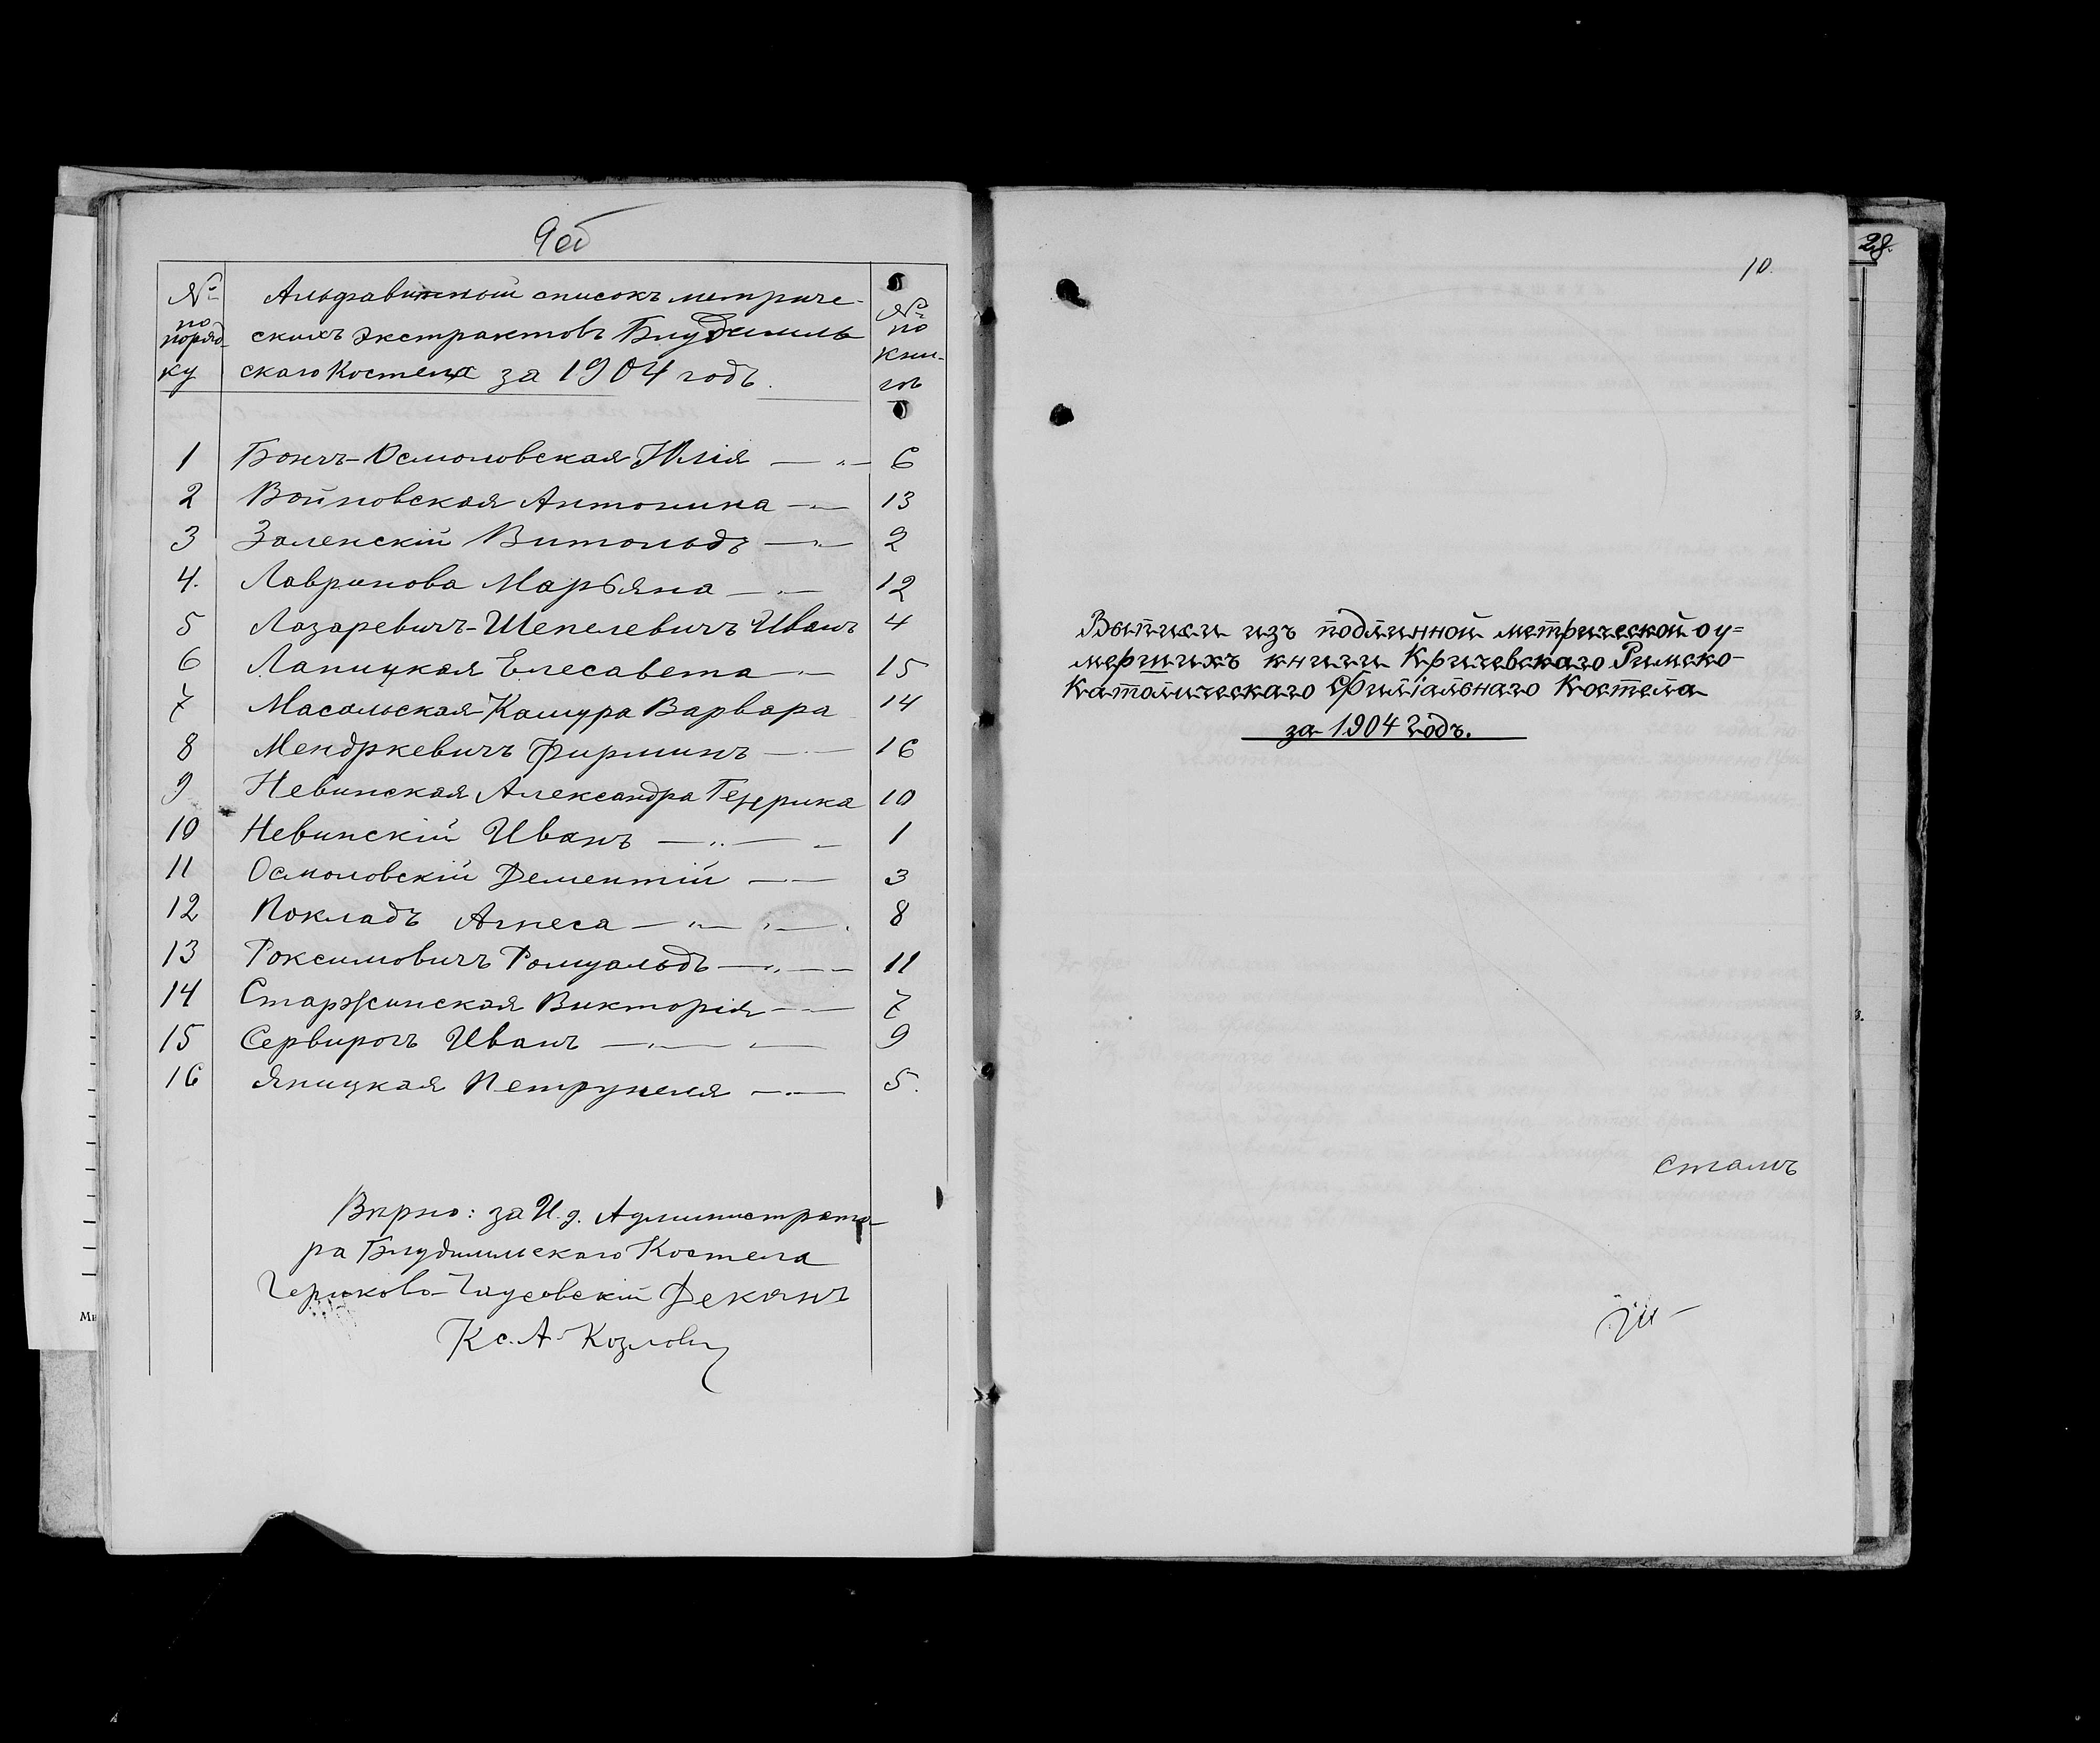 9об
№ по порядку
Альфавитный списокъ метриче-
скихъ экстрактовъ Блудимль
скаго Костела за 1904 годъ.
№ по книгѣ
1 Бончъ-Осмоловская Юлія — 6
2 Войновская Антонина — 13
3 Заленскій Витольдъ — 2
4. Лавринова Марьяна — 12
5 Лазаревичъ-Шепелевичъ Иванъ 4
6 Лапицкая Елесавета — 15
7 Масальская-Кашура Варвара 14
8 Мендркевичъ Фирминъ — 16
9 Невинская Александра Генрика 10
10 Невинскій Иванъ — 1
11 Осмоловскій Дементій — 3
12 Покладъ Агнеса — 8
13 Роксимовичъ Ромуальдъ — 11
14 Старжинская Викторія — 7
15 Сервирогъ Иванъ — 9
16 Яницкая Петрунеля — 5.
Вѣрно: за И. д. Администрато-
ра Блудимльскаго Костела
Чериково-Чаусовскій Деканъ
Кс. А. Козлов
10.
Выписи изъ подлинной метрической о у=
мершихъ книги Кричевскаго Римско-
Католическаго Филіальнаго Костела
за 1904 годъ.
28.